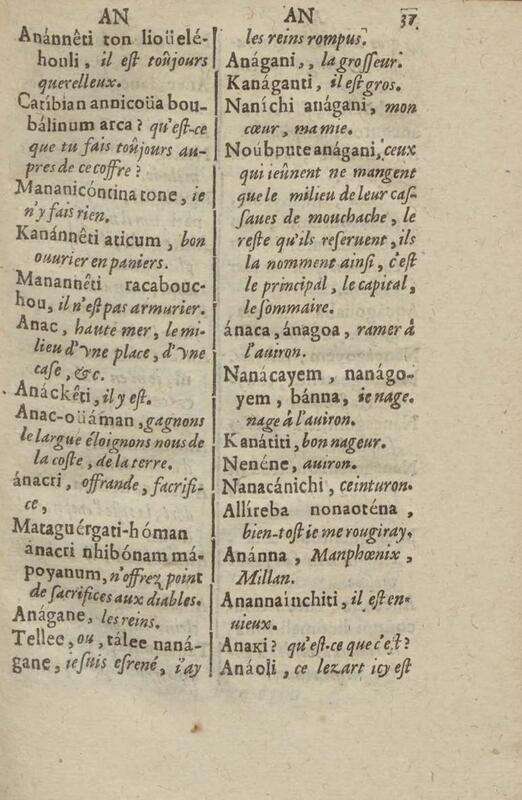 AN
Anánnêti ton lioüelé-
houli, il est toûjours
querelleux.
Caribian annicoüa bou-
bálinum arca? qu'est-ce
que tu fais toûjours au-
pres de ce coffre?
Mananicóntina tone, ie
n'y fais rien.
Kanánnêti aticum, bon
ouurier en paniers.
Manannêti racabouc-
hou, il n'est pas armurier.
Anac, haute mer, le mi-
lieu d'vne place, d'vne
case, &c.
Anáckêti, il y est.
Anac-oüáman, gagnons
le largue éloignons nous de
la coste, de la terre.
ánacri, offrande, sacrifi-
ce,
Mataguérgati-hóman
ánacri nhibónam má-
poyanum, n'offrez point
de sacrifices aux diables.
Anágane, les reins.
Tellee, ou, tálee naná-
gane, ie suis esrené, i'ay
AN 37
les reins rompus.
Anágani,, la grosseur.
Kanáganti, il est gros.
Naníchi anágani, mon
cœur, ma mie.
Noúbpute anágani, ceux
qui ieûnent ne mangent
que le milieu de leur cas-
saues de mouchache, le
reste qu'ils reseruent, ils
la nomment ainsi, c'est
le principal, le capital,
le sommaire.
ánaca, ánagoa, ramer â
l'auiron.
Nanácayem, nanágo-
yem, bánna, ie nage.
nage â l'auiron.
Kanátiti, bon nageur.
Nenéne, auiron.
Nanacánichi, ceinturon.
Allíreba nonaoténa,
bien-tost ie me rougiray.
Anánna, Manphœnix,
Millan.
Anannainchiti, il est en-
uieux.
Anaκi? qu'est-ce que c'est?
Anáoli, ce lezart icy est